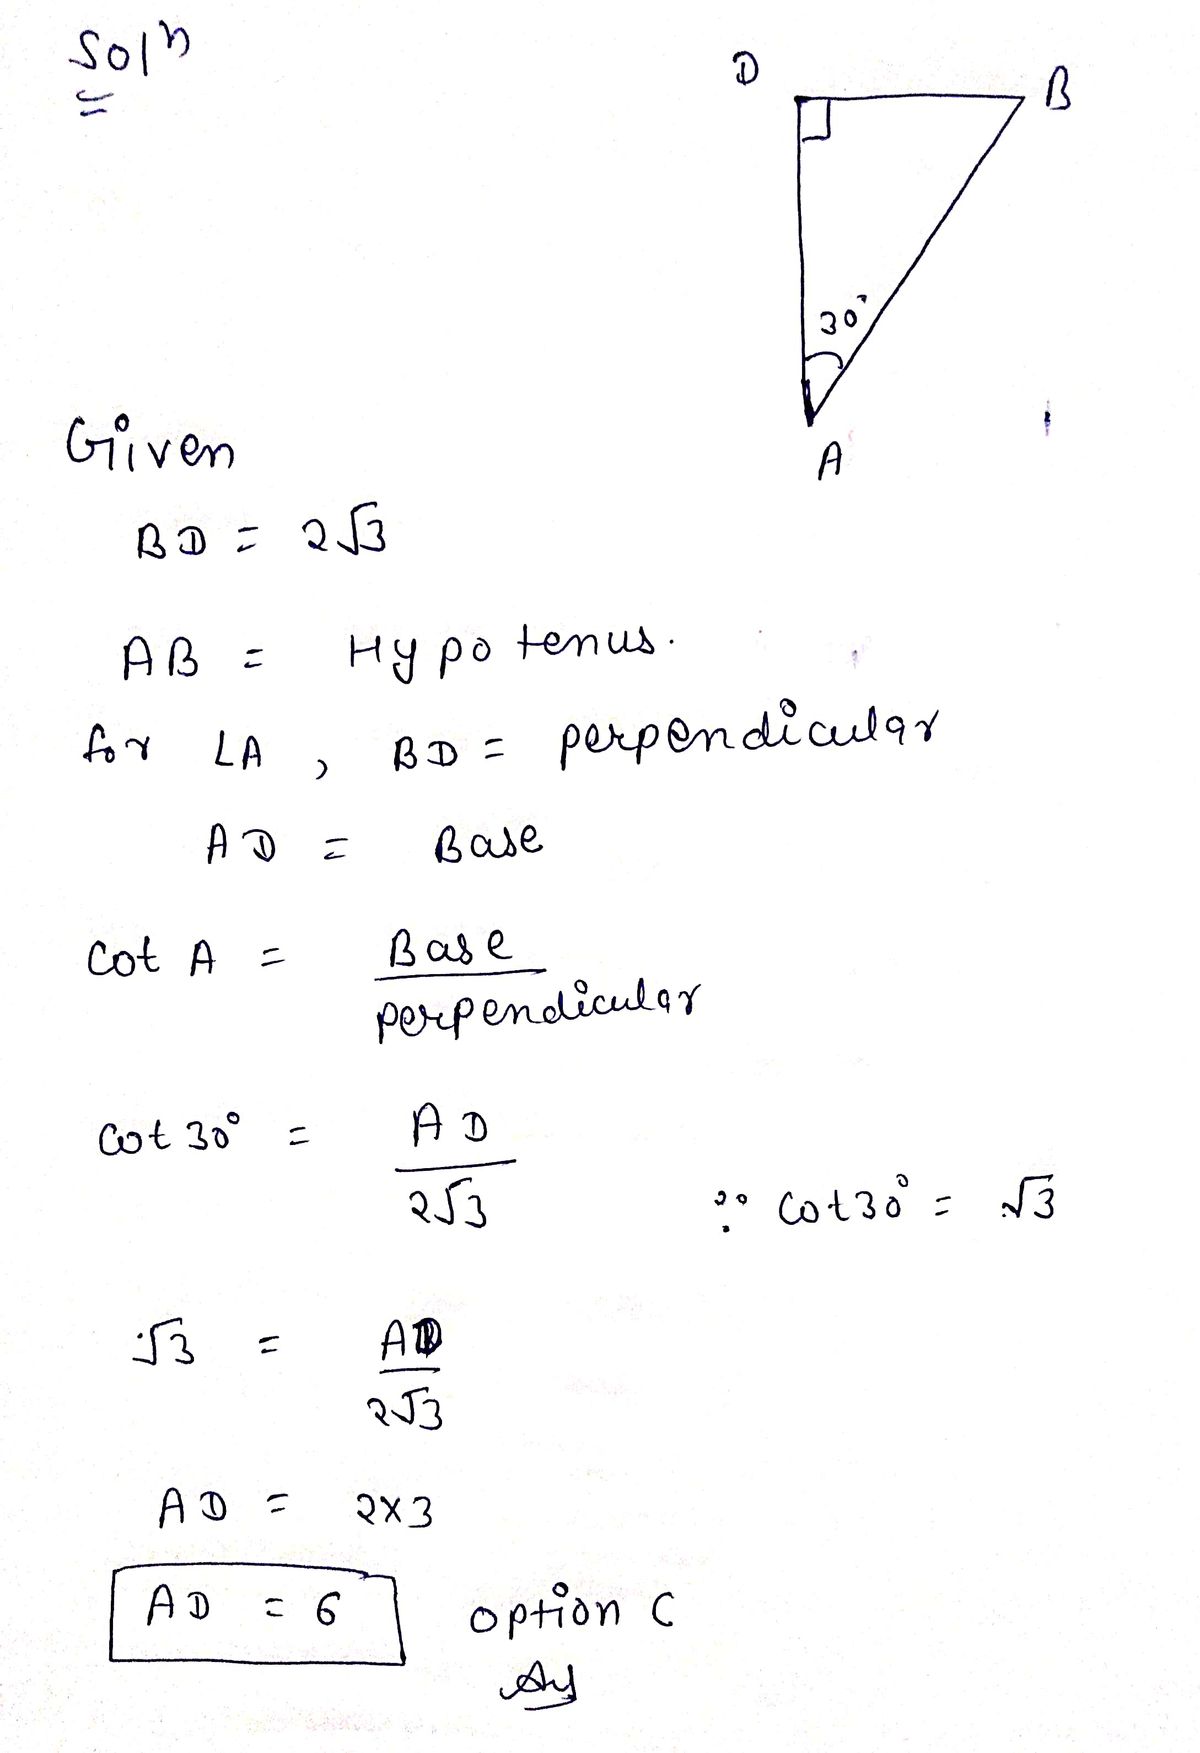 Soln
D
B
30°
A
Given
BD = 2√3
AB = Hypotenus.
for ∠A, BD = perpendicular
AD = Base
Cot A = Base
perpendicular
Cot 30° = AD
2√3
∵ Cot 30° = √3
√3 = AD
2√3
AD = 2×3
AD = 6
option C
Ans